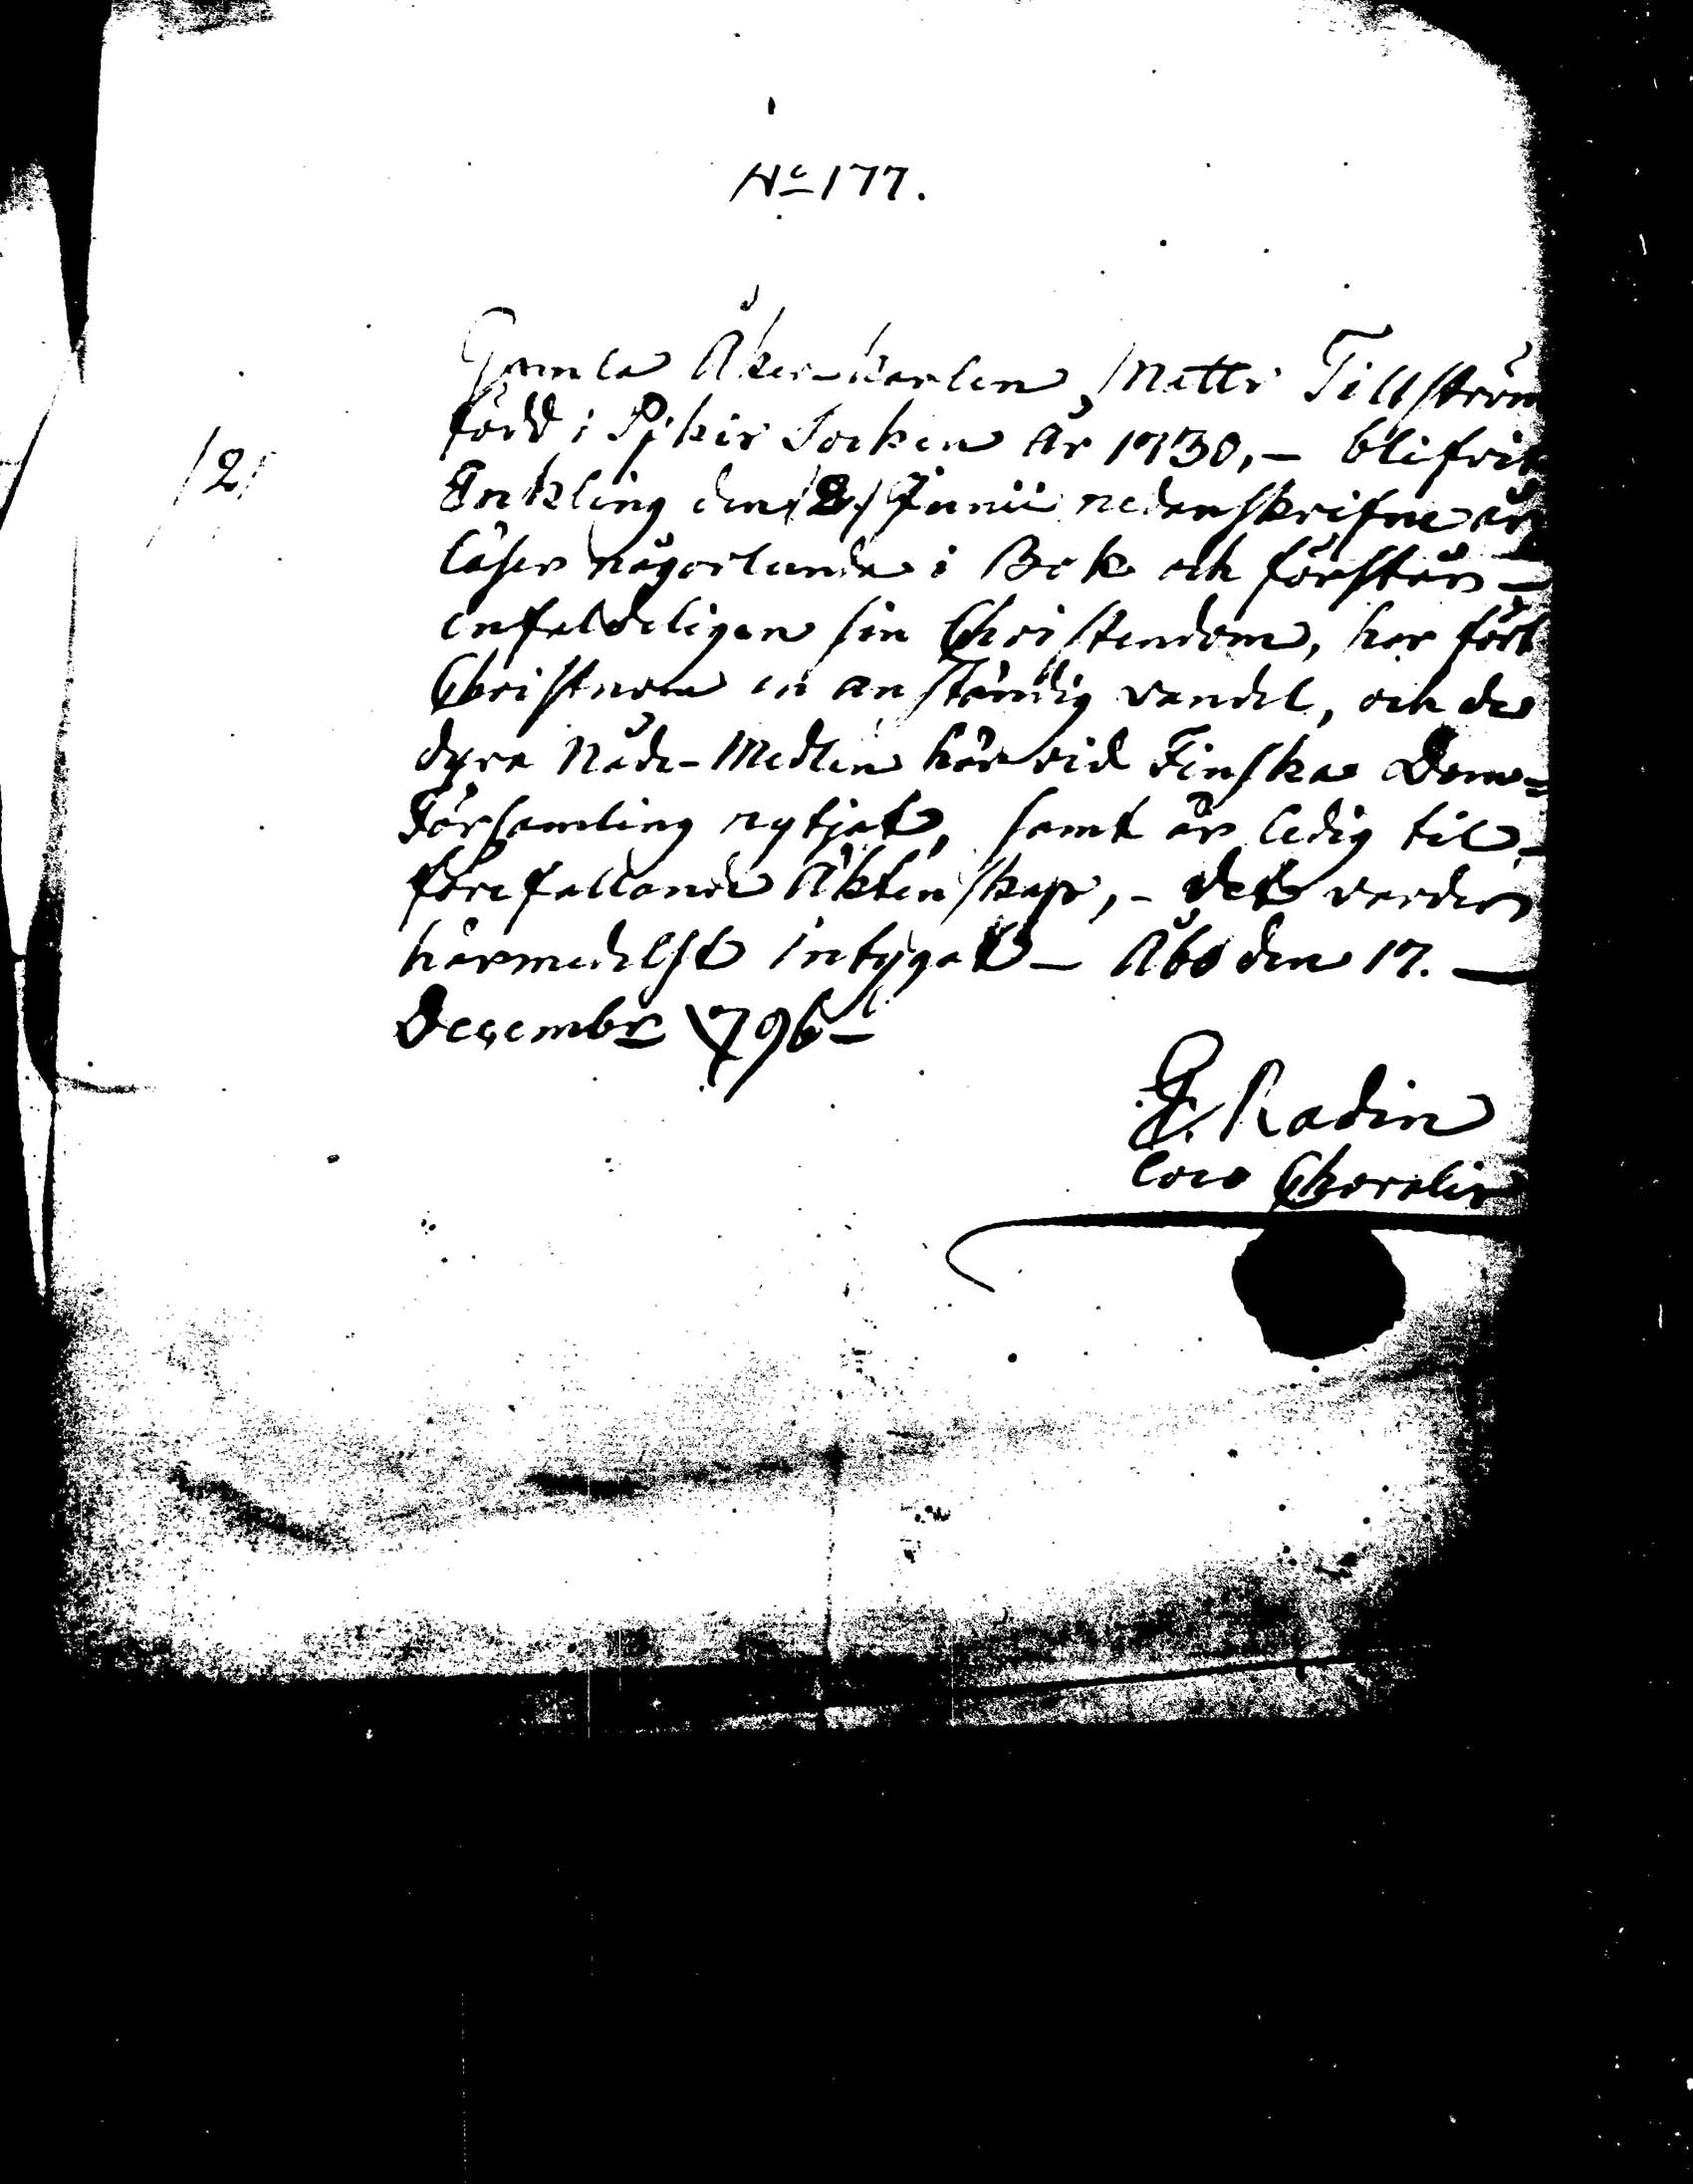 No 177.
Gamla Åker-karlen, Matts Tillström
född i Pikis Socken År 1730, – blifvit
/2/
Enkling den /2/ Junii nedanskrifne år
läser någorlunda i Bok och förstår –
enfaldeligen sin Christendom, har fört
Christnom en anständig vandel, och de
dyra Nåde-Medlen här vid Finska Dom=
Församling nytjat, samt är ledig til
förefallande Äktenskap, – det varder
härmedelst intygat – Åbo den 17. –
Decembr 1796 –
Radin
loco